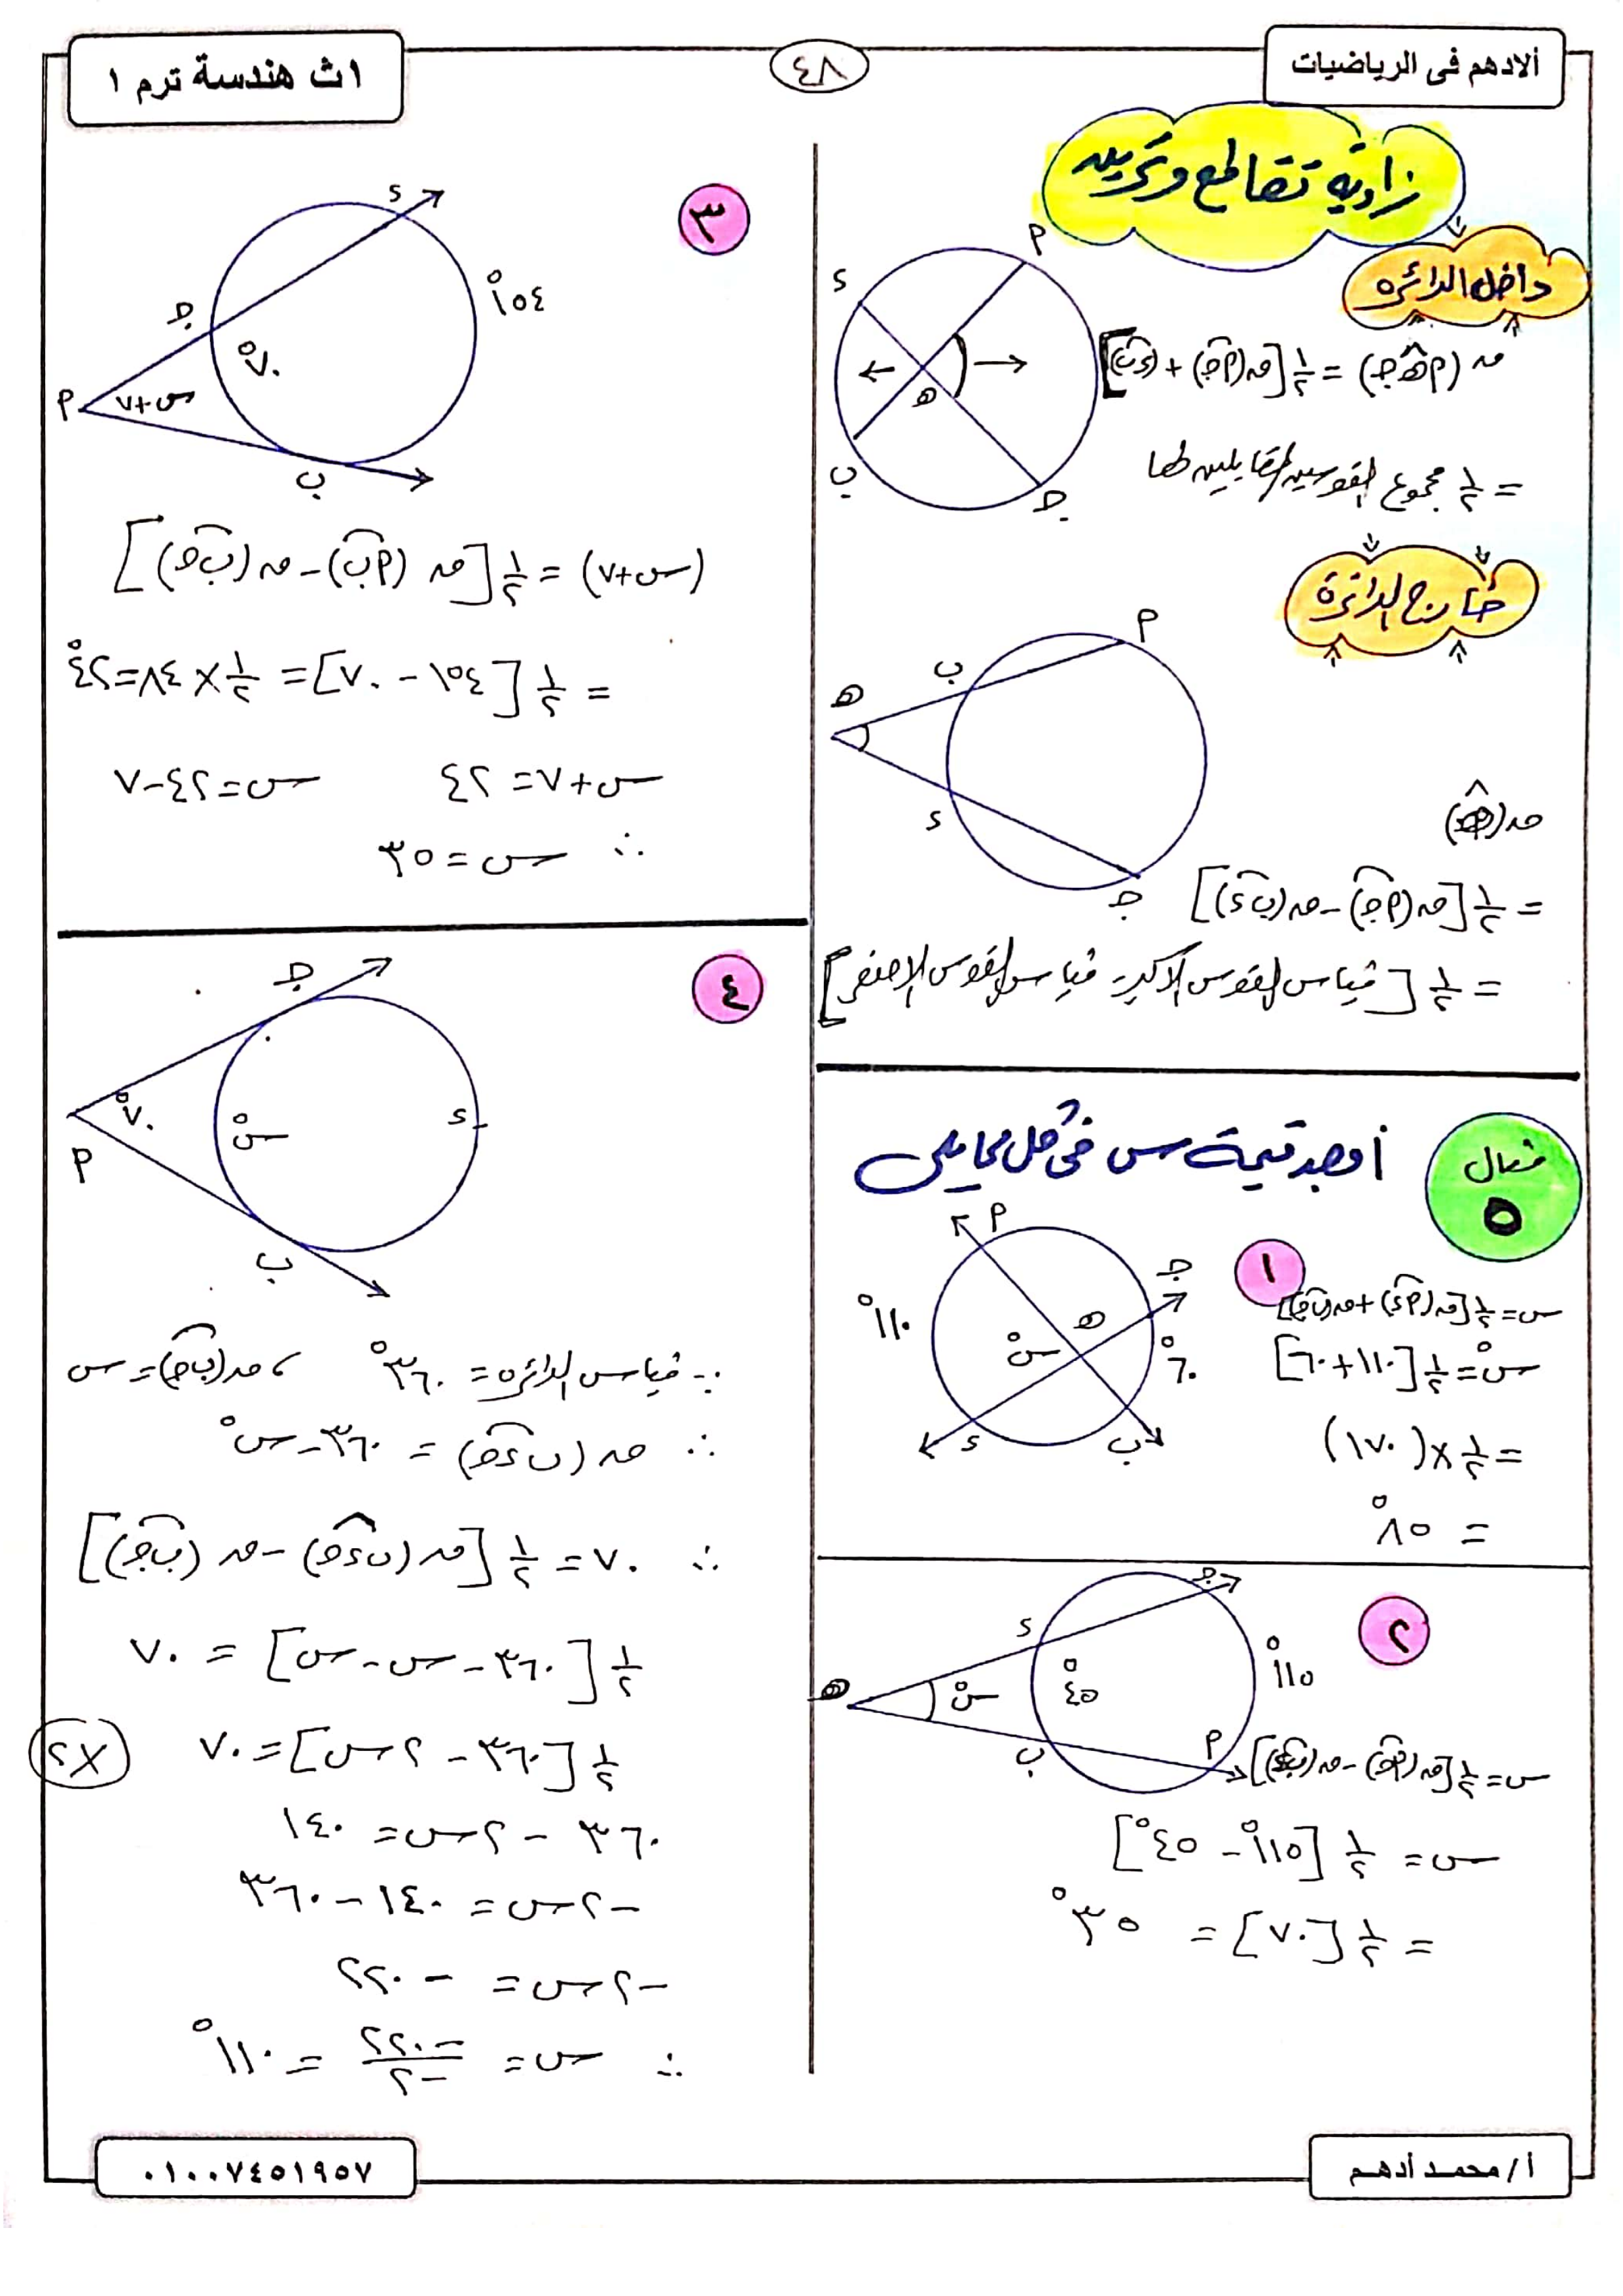 الادهم فى الرياضيات
٤٨
١ث هندسة ترم ١
زاوية تقاطع وترين
داخل الدائرة
م د ب ج ه
ق(أهـج) = ١/٢ [ق(أج) + ق(د ب)]
= ١/٢ مجموع القوسين المقابلين لها
خارج الدائرة
م ب هـ د ج
ق(هـ)
= ١/٢ [ق(أج) - ق(ب د)]
= ١/٢ [قياس القوس الأكبر - قياس القوس الأصغر]
مثال ٥
أوجد قيمة س فى كل مما يلى
١
أ ج هـ د ب
١١٠° س° ٦٠°
س = ١/٢ [ق(أد) + ق(ب ج)]
س° = ١/٢ [١١٠ + ٦٠]
= ١/٢ × (١٧٠)
= ٨٥°
٢
ج د هـ ب أ
س° ٤٥° ١١٥°
س = ١/٢ [ق(أج) - ق(ب د)]
س = ١/٢ [١١٥° - ٤٥°]
= ١/٢ [٧٠] = ٣٥°
٣
د ج أ ب
١٥٤° ٧٠° س+٧
(س+٧) = ١/٢ [ق(أب) - ق(ب ج)]
= ١/٢ [١٥٤ - ٧٠] = ١/٢ × ٨٤ = ٤٢°
س+٧ = ٤٢ س = ٤٢-٧
∴ س = ٣٥
٤
ج د أ ب
٧٠° س°
∵ قياس الدائرة = ٣٦٠° ، ق(ب ج) = س
∴ ق(ب د ج) = ٣٦٠ - س°
∴ ٧٠ = ١/٢ [ق(ب د ج) - ق(ب ج)]
١/٢ [٣٦٠ - س - س] = ٧٠
١/٢ [٣٦٠ - ٢س] = ٧٠ ×٢
٣٦٠ - ٢س = ١٤٠
-٢س = ١٤٠ - ٣٦٠
-٢س = -٢٢٠
∴ س = -٢٢٠/-٢ = ١١٠°
أ/ محمد أدهم
٠١٠٠٧٤٥١٩٥٧